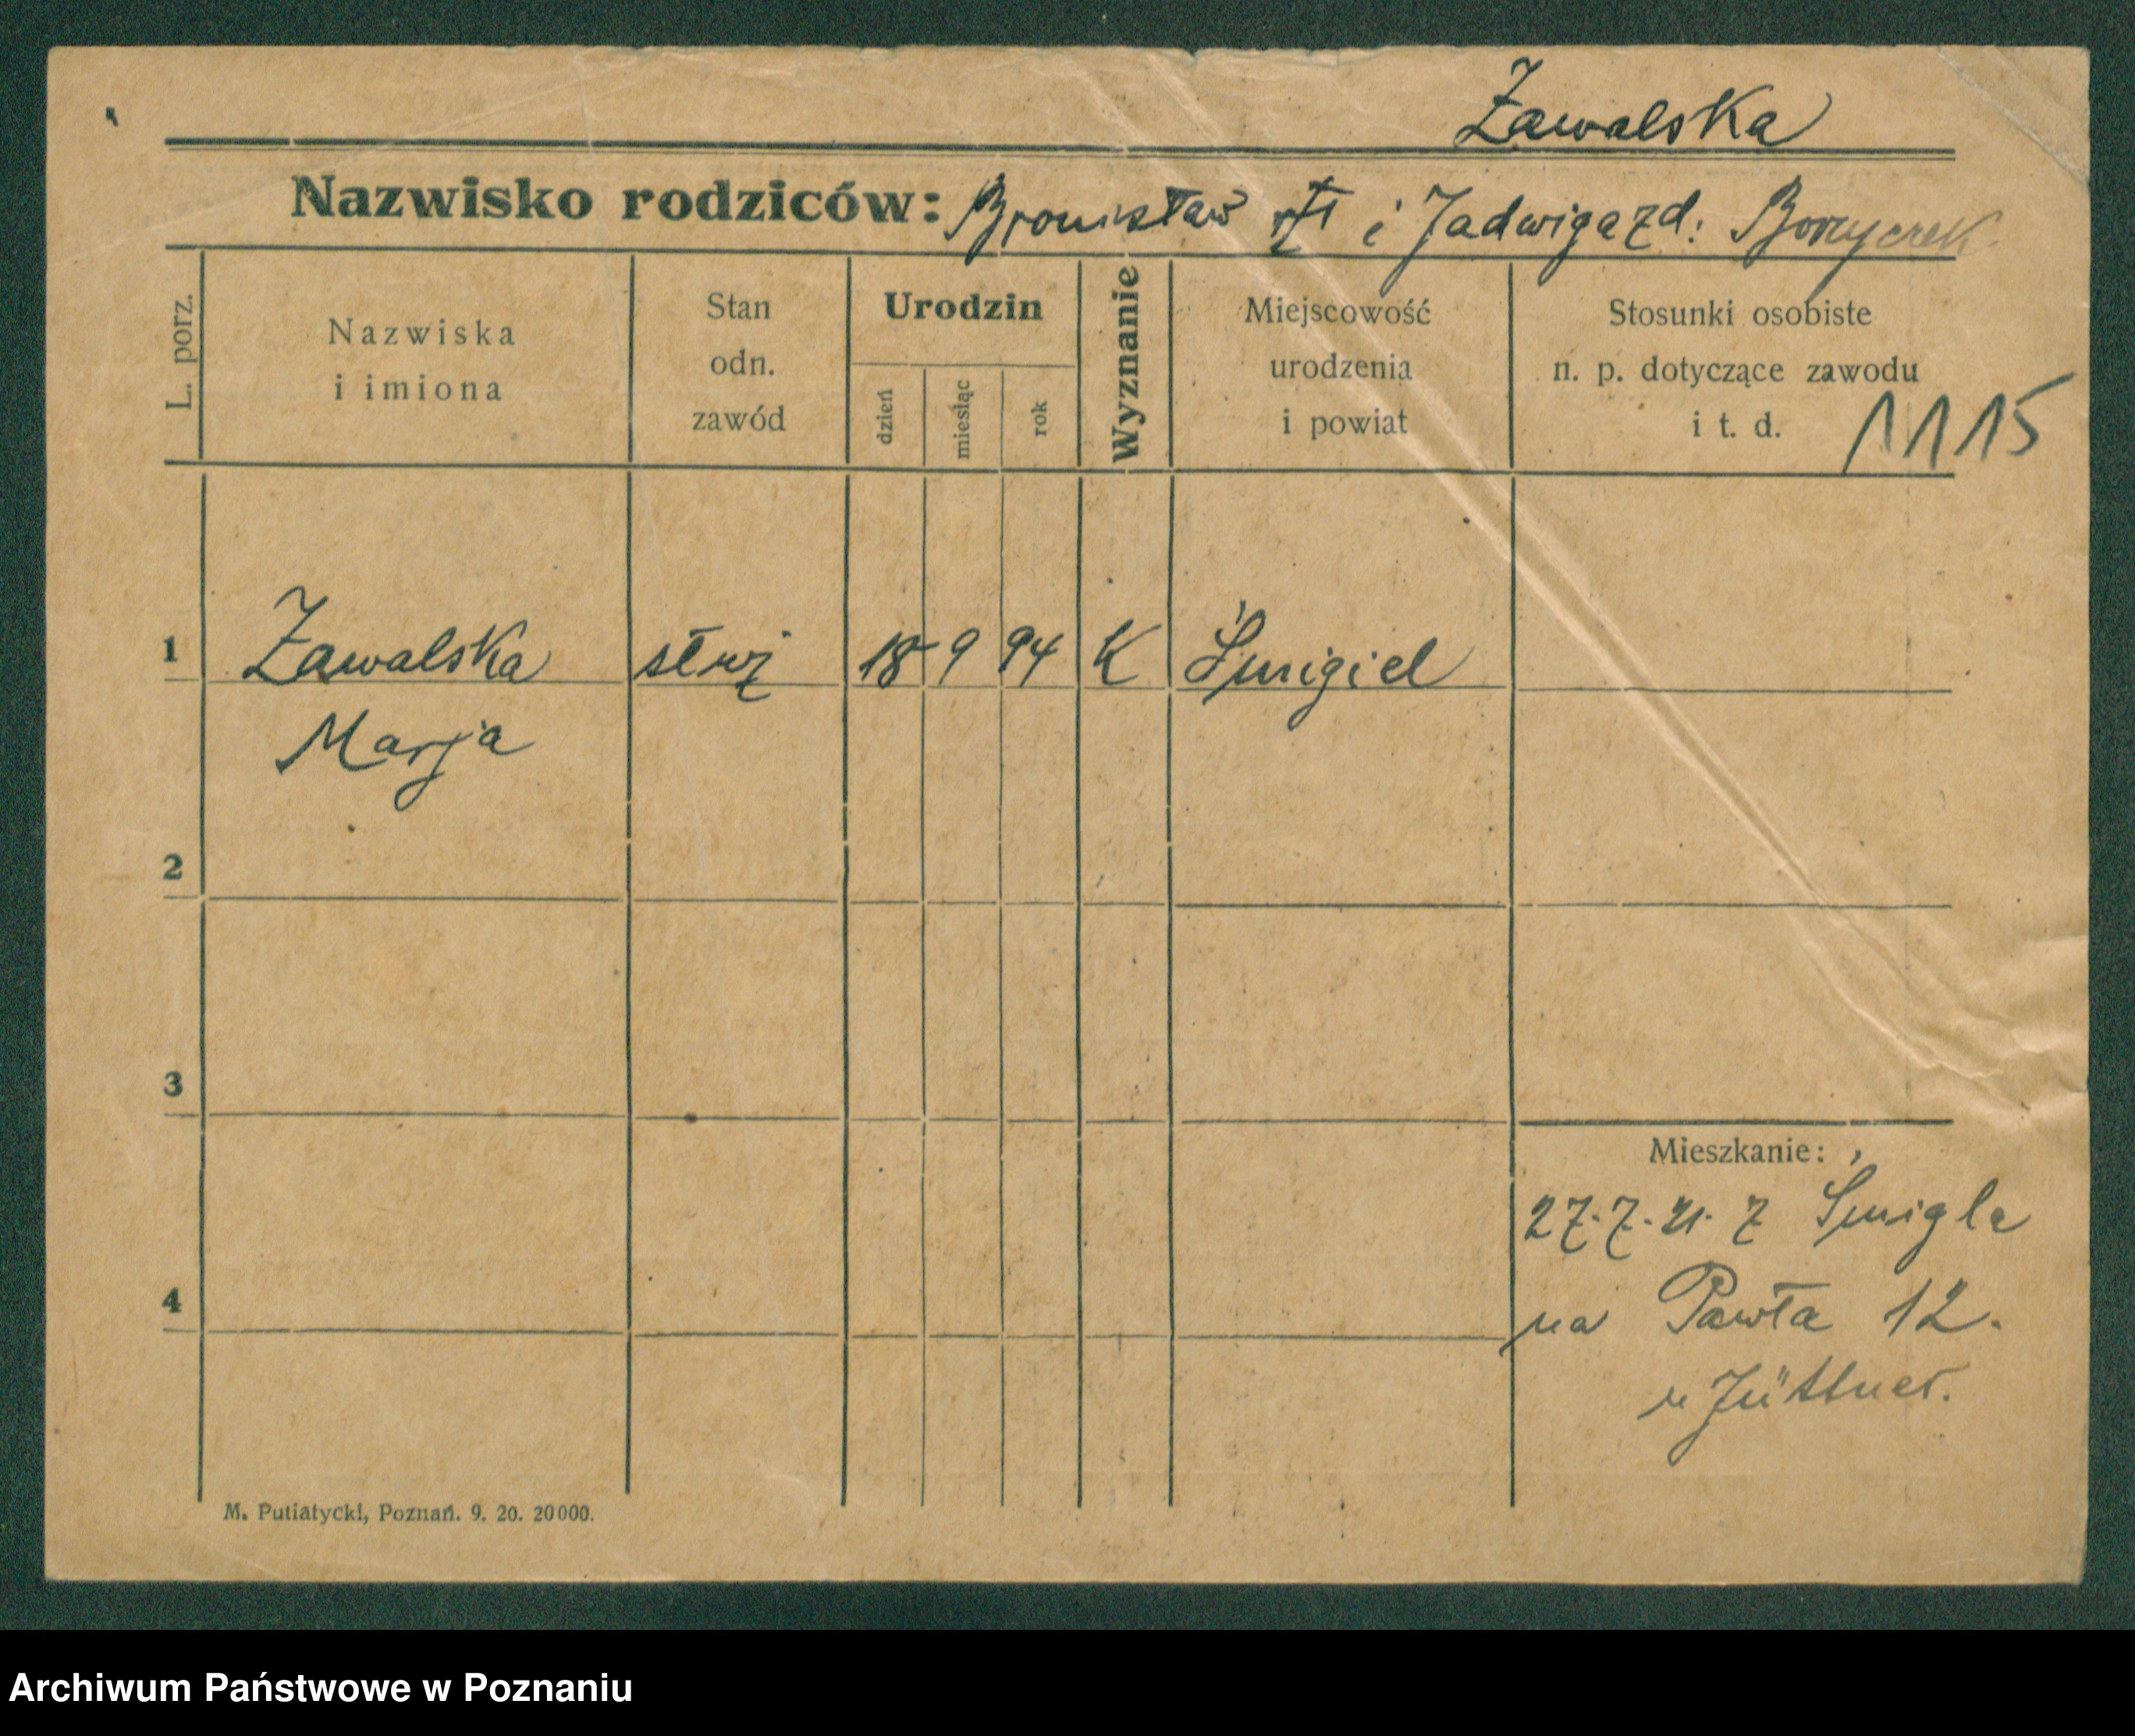 Zawalska
Nazwisko rodziców: Bronisław i Jadwiga zd:
L. porz.
Nazwiska i imiona
Stan odn. zawód
Urodzin
dzień
miesiąc
rok
Wyznanie
Miejscowość urodzenia i powiat
Stosunki osobiste n. p. dotyczące zawodu i t. d.
1115
1 Zawalska służ 18 9 94 K Śmigiel
Marja
2
3
Mieszkanie:
27.7.21. z Śmigla
4
na Pawła 12.
u Jüttner.
M. Putiatycki, Poznań. 9. 20. 20000.
Archiwum Państwowe w Poznaniu